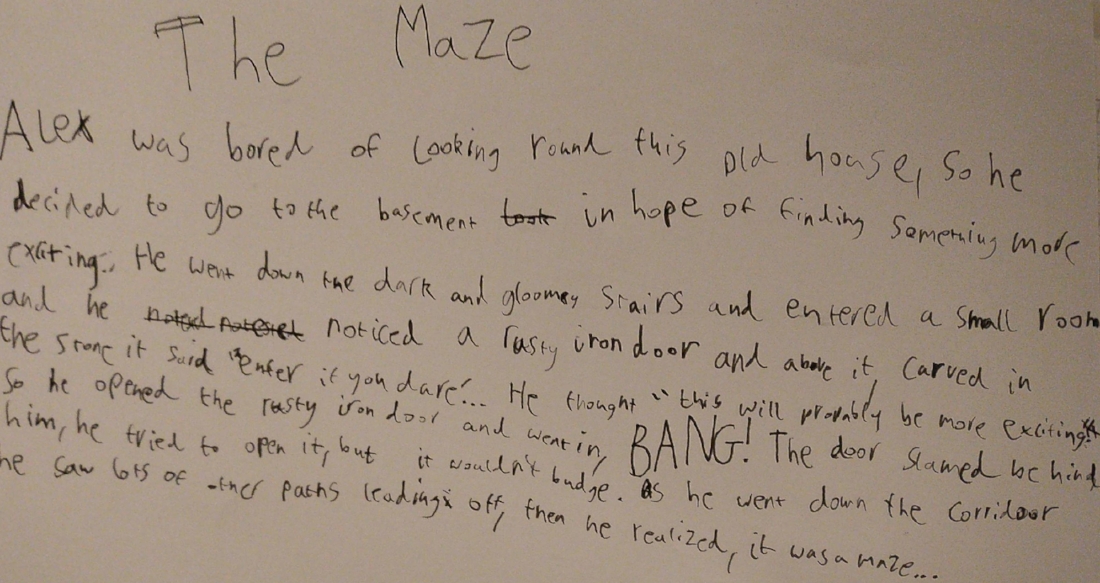 The Maze
Alex was bored of Looking round this old house, so he
decided to go to the basement in hope of finding something more
exciting.. He went down the dark and gloomey stairs and entered a small room
and he noticed a rusty iron door and above it, carved in
the stone it said "enter if you dare"... He thought "this will probably be more exciting"
so he opened the rusty iron door and went in, BANG! The door slamed behind
him, he tried to open it, but it wouldn't budge. As he went down the corridoor
he saw lots of other paths leading off, then he realized, it was a maze...